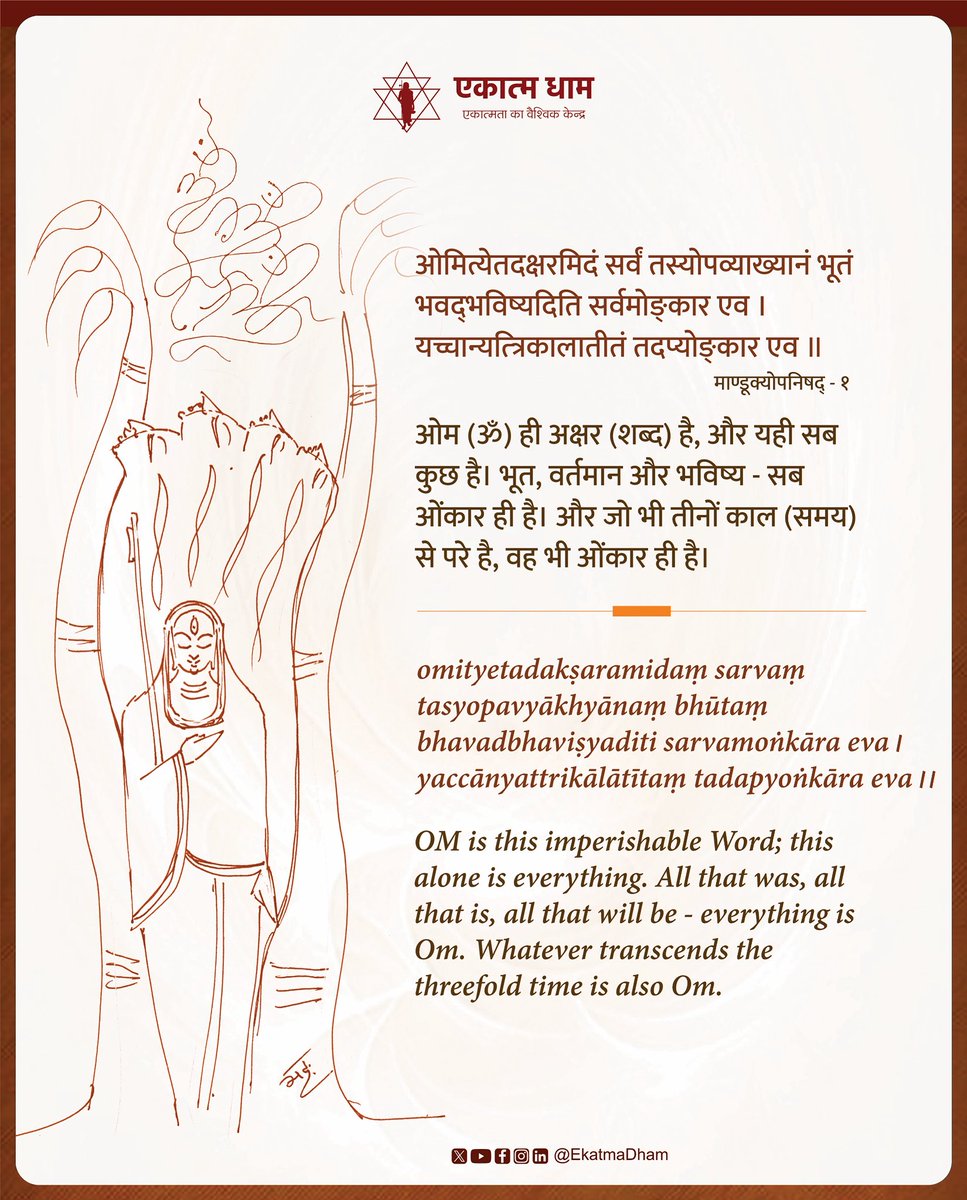 एकात्म धाम
एकात्मता का वैश्विक केन्द्र
ओमित्येतदक्षरमिदं सर्वं तस्योपव्याख्यानं भूतं
भवद्भविष्यदिति सर्वमोङ्कार एव ।
यच्चान्यत्त्रिकालातीतं तदप्योङ्कार एव ॥
माण्डूक्योपनिषद् - १
ओम (ॐ) ही अक्षर (शब्द) है, और यही सब
कुछ है। भूत, वर्तमान और भविष्य - सब
ओंकार ही है। और जो भी तीनों काल (समय)
से परे है, वह भी ओंकार ही है।
omityetadakṣaramidaṃ sarvaṃ
tasyopavyākhyānaṃ bhūtaṃ
bhavadbhaviṣyaditi sarvamoṅkāra eva ।
yaccānyattrikālātītaṃ tadapyoṅkāra eva ।।
OM is this imperishable Word; this
alone is everything. All that was, all
that is, all that will be - everything is
Om. Whatever transcends the
threefold time is also Om.
@EkatmaDham